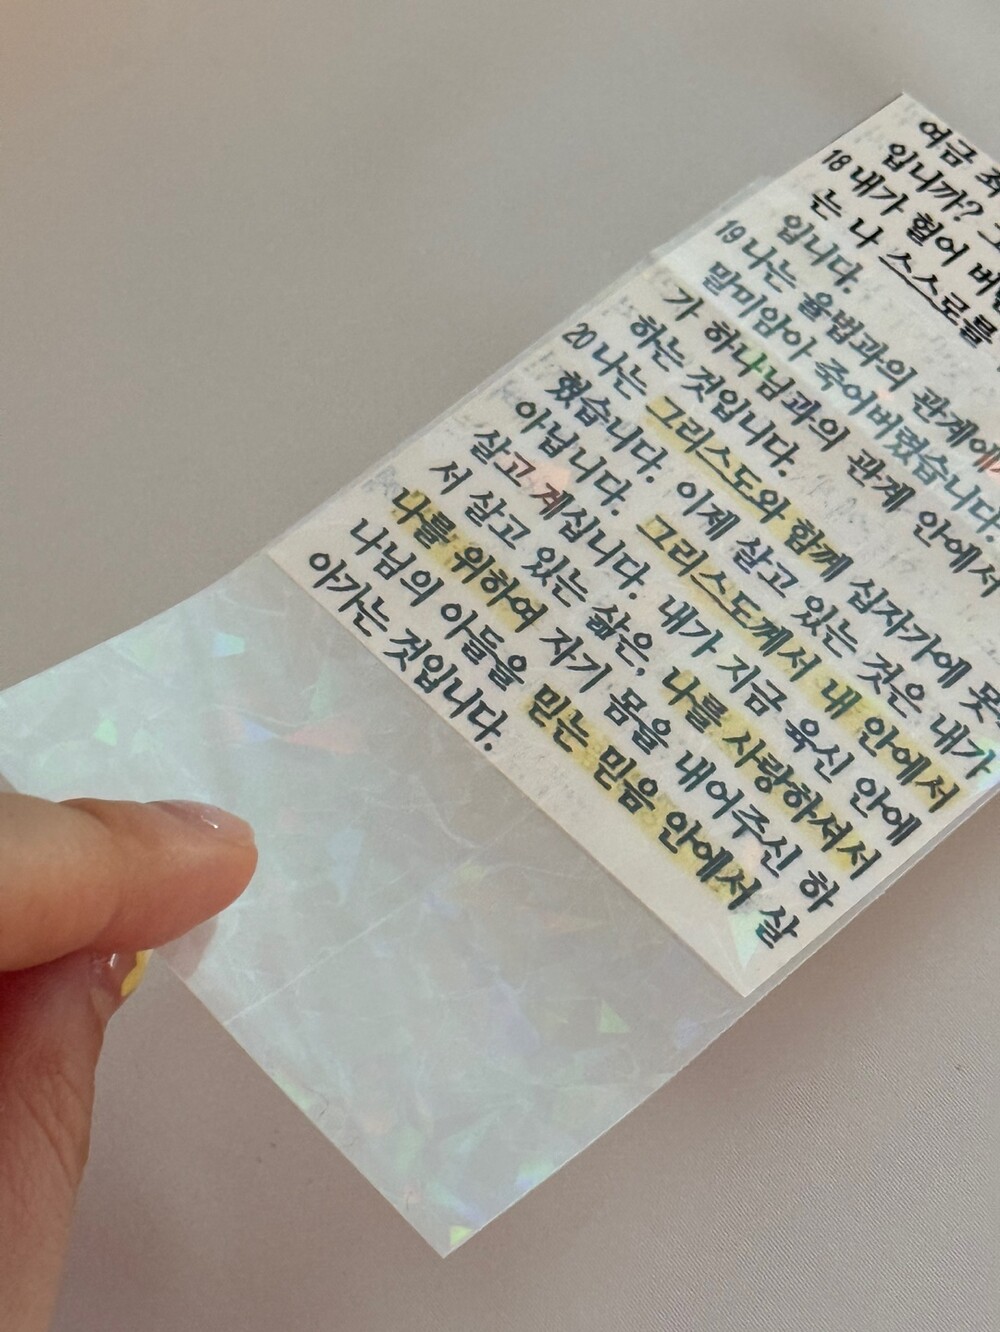 여금 죄
입니까? 그
18 내가 헐어 버린
는 나 스스로를
입니다.
19 나는 율법과의 관계에서
말미암아 죽어버렸습니다.
가 하나님과의 관계 안에서
하는 것입니다.
20 나는 그리스도와 함께 십자가에 못
혔습니다. 이제 살고 있는 것은 내가
아닙니다. 그리스도께서 내 안에서
살고 계십니다. 내가 지금 육신 안에
서 살고 있는 삶은, 나를 사랑하셔서
나를 위하여 자기 몸을 내어주신 하
나님의 아들을 믿는 믿음 안에서 살
아가는 것입니다.